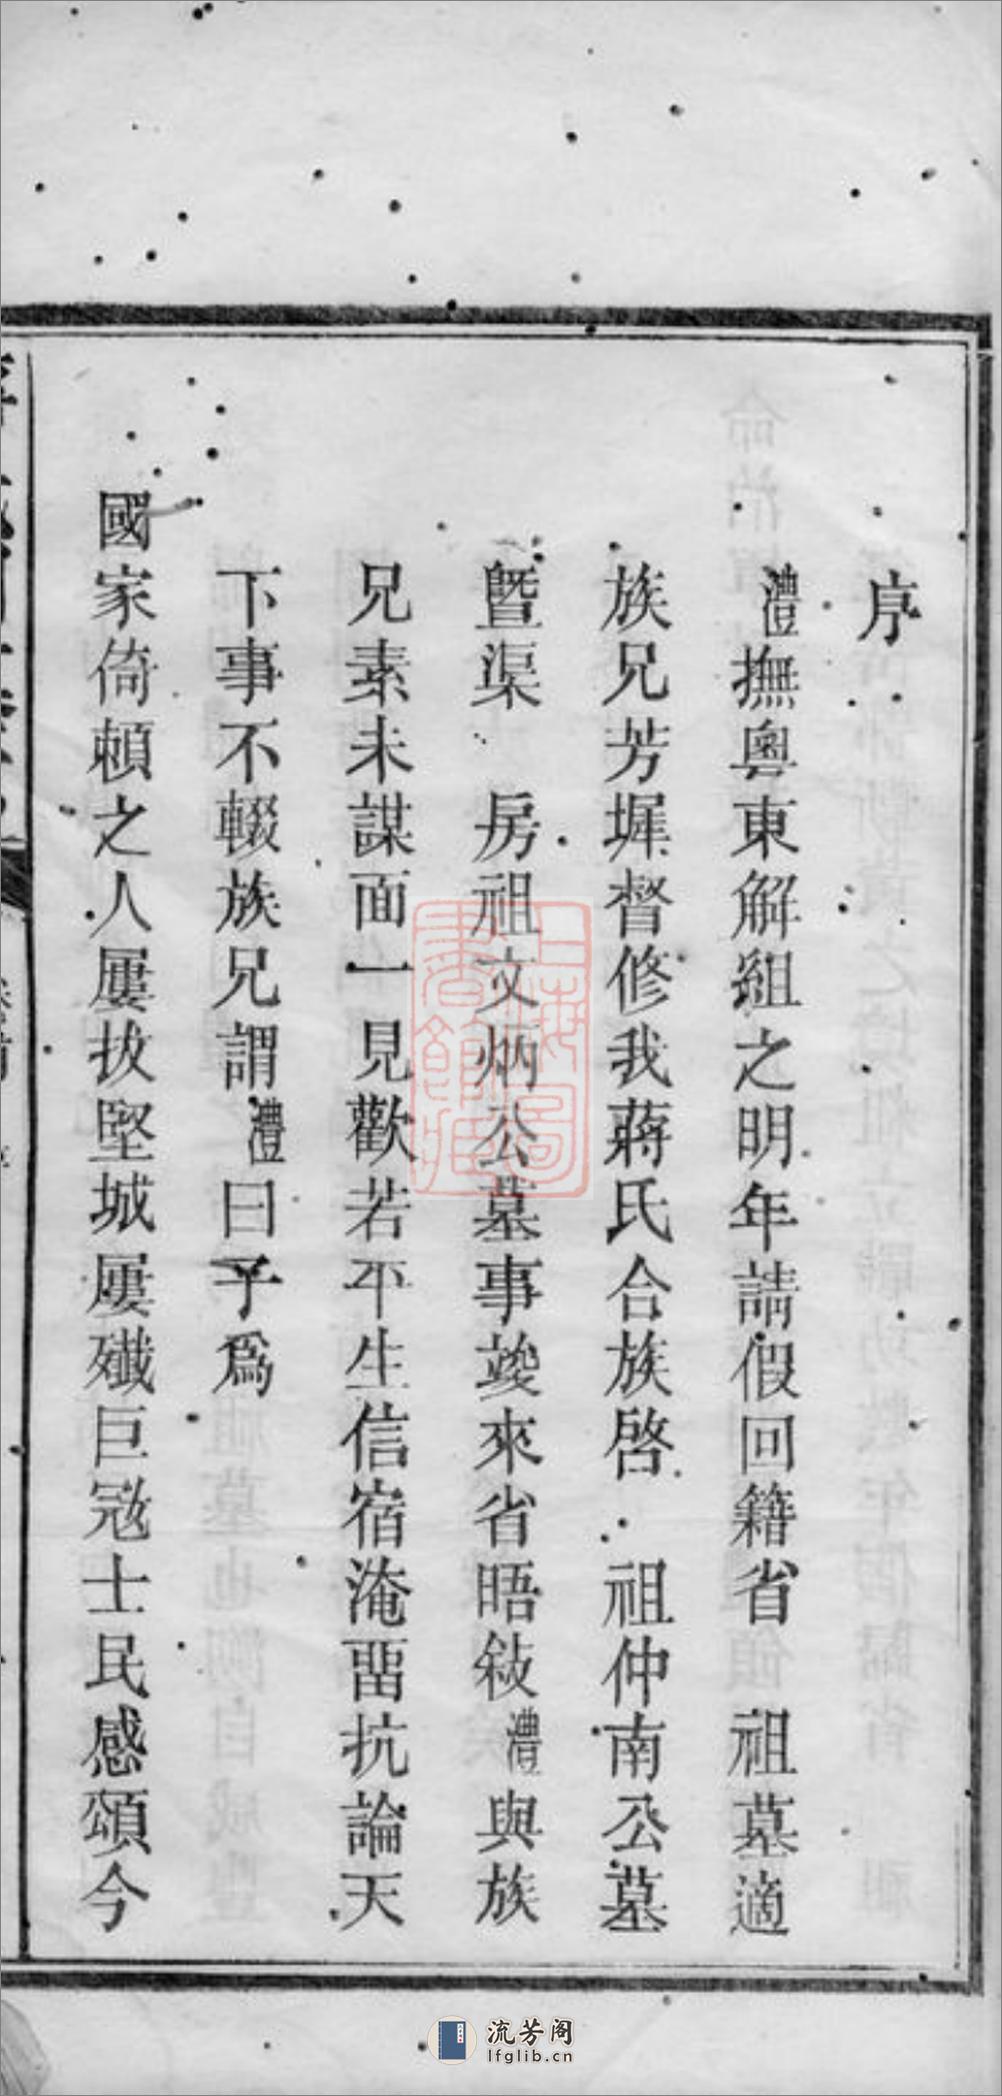 序
澧撫粵東解組之明年請假回籍省　祖墓適
族兄芳墀督修我蔣氏合族啓　祖仲南公墓
暨渠　房祖文炳公墓事竣來省晤敍澧與族
兄素未謀面一見歡若平生信宿淹畱抗論天
下事不輟族兄謂澧曰予爲
國家倚賴之人屢拔堅城屢殲巨寇士民感頌今
上海圖書館藏
流芳阁
lfglib.cn